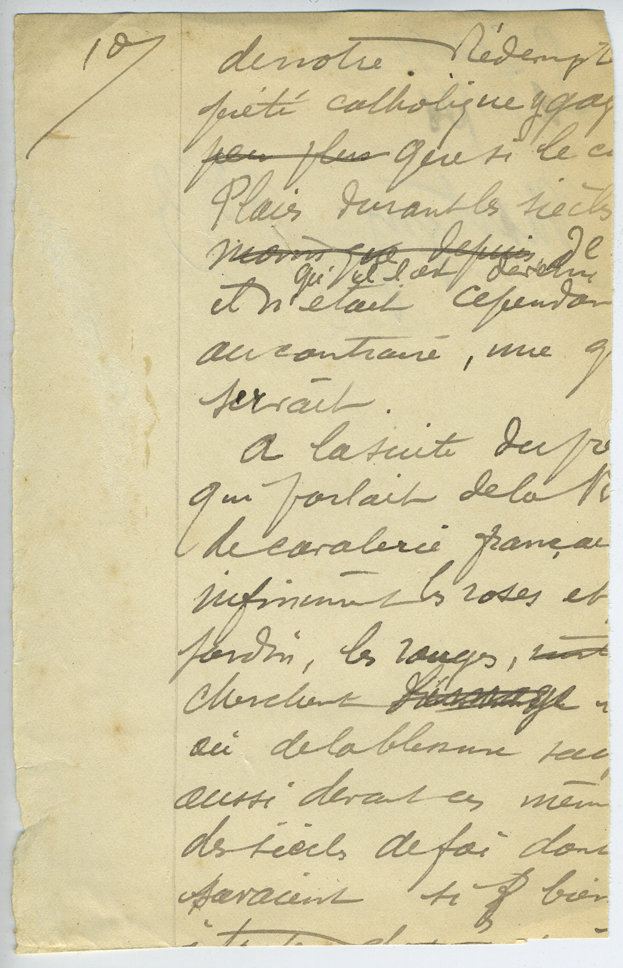 10/
de notre Rédempt
piété catholique y gag
peu plus que si le c
Plaies durant les siècles
moins que depuis de
qu'il est devenu
et n'était cependan
au contraire, une q
serrait.
A la suite du po
qui parlait de la
de cavalerie françai
infiniment les roses et
jardin, les rouges,
cherchent
où de la blessure
aussi devant ces mêm
des siècles de foi don
savaient si bien